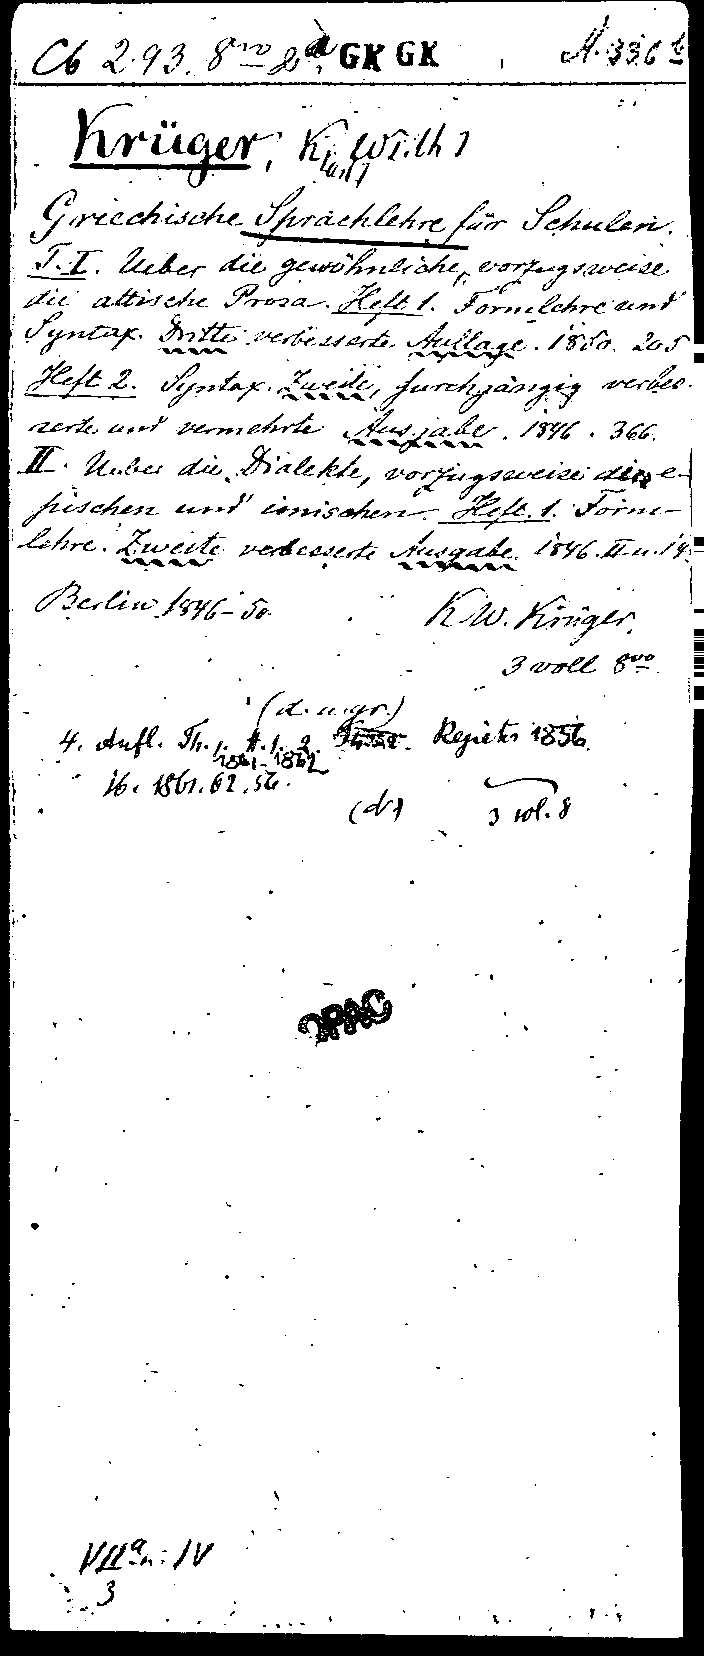 Cb 293. 8vo 2d. GK GK A. 336 b
Krüger, K[arl] W[ilh]
Griechische Sprachlehre für Schulen.
T. I. Ueber die gewöhnliche, vorzugsweise
die attische Prosa. Heft 1. Formlehre und
Syntax. Dritte verbesserte Auflage. 1850. 205
Heft 2. Syntax. Zweite, durchgängig verbes-
serte und vermehrte Ausgabe. 1846. 366.
II. Ueber die Dialekte, vorzugsweise den e-
pischen und ionischen. Heft. 1. Form-
lehre. Zweite verbesserte Ausgabe. 1846. II u. 19
Berlin 1846-50.
K W. Krüger.
3 voll 8vo.
(d. u. gr.)
4. Aufl. Th. 1. H. 1. 2. Register 1856.
1861-1862
ib. 1861. 62. 56.
(d.) 3 vol. 8
OPAC
3